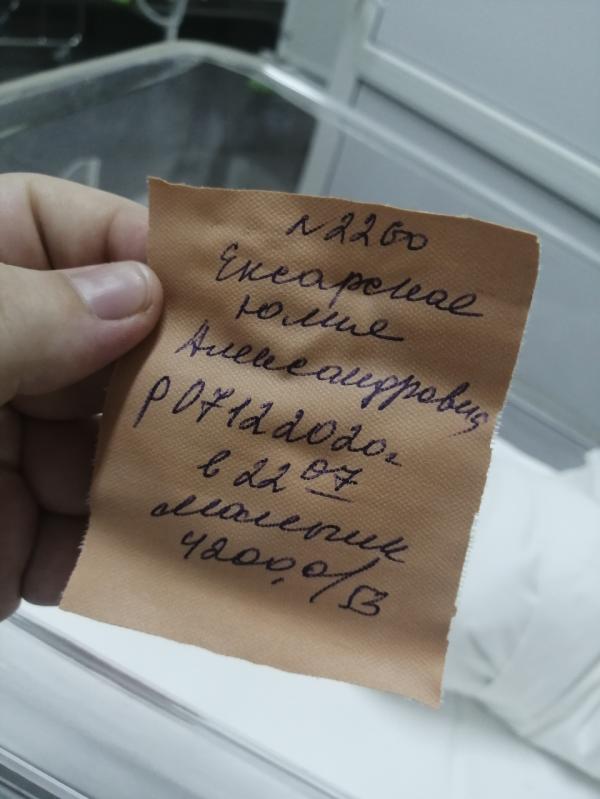 № 2260
Ексарская
Юлия
Александровна
Р 07 12 2020г
в 22 07
мальчик
4200,0/53